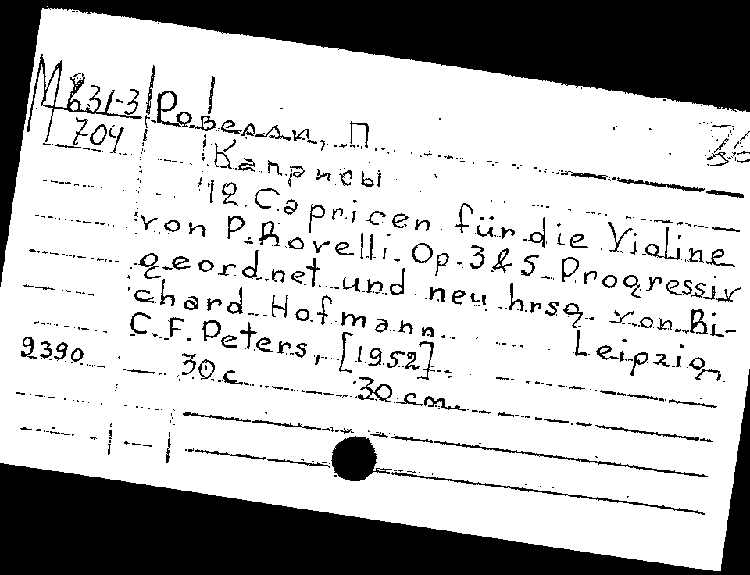 М 831-3 Ровелли, П.
704 Каприсы
12 Capricen für die Violine
von P. Rovelli. Op. 3 & 5 Progressiv
geordnet und neu hrsg. von Ri-
chard Hofmann. Leipzig,
C. F. Peters, [1952].
9390 30 с. 30 cm.